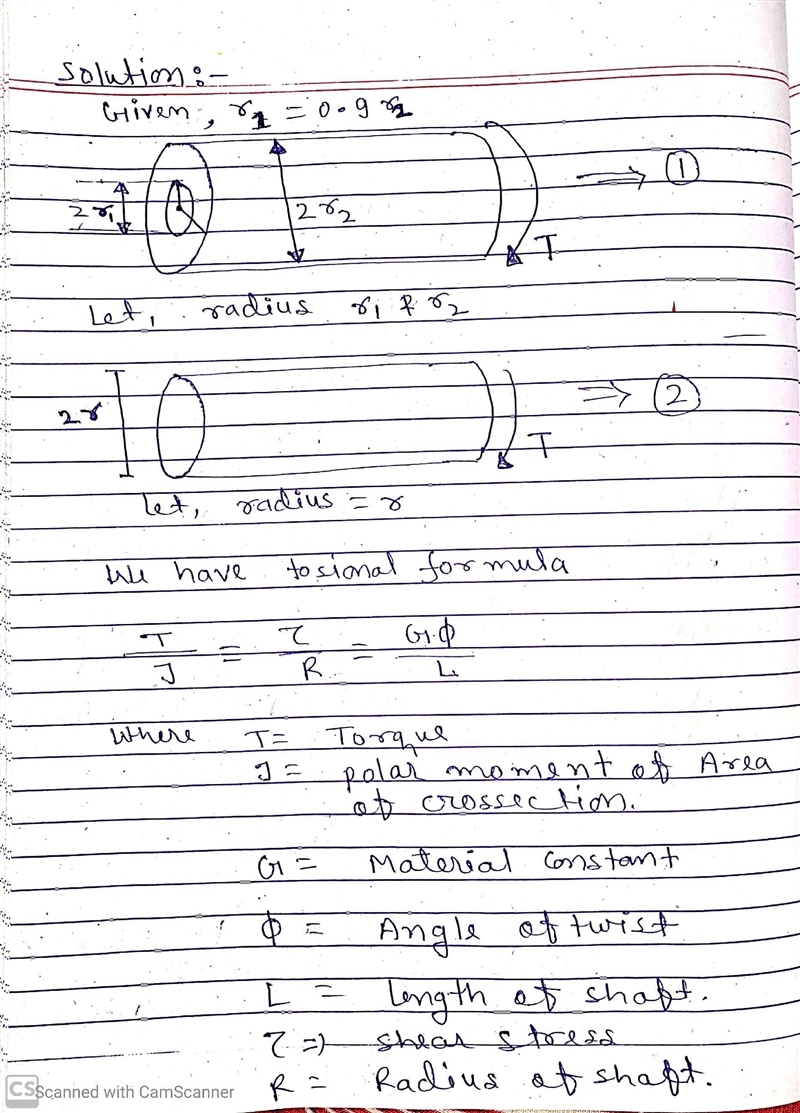 Solution :-
Given, r1 = 0.9 r2
2r1
2r2
T
⇒ ①
Let, radius r1 & r2
2r
T
⇒ ②
Let, radius = r
We have tosional formula
T/J = τ/R = G.φ/L
Where T = Torque
J = polar moment of Area
of crossection.
G = Material Constant
φ = Angle of twist
L = length of shaft.
τ => shear stress
R = Radius of shaft.
CS Scanned with CamScanner